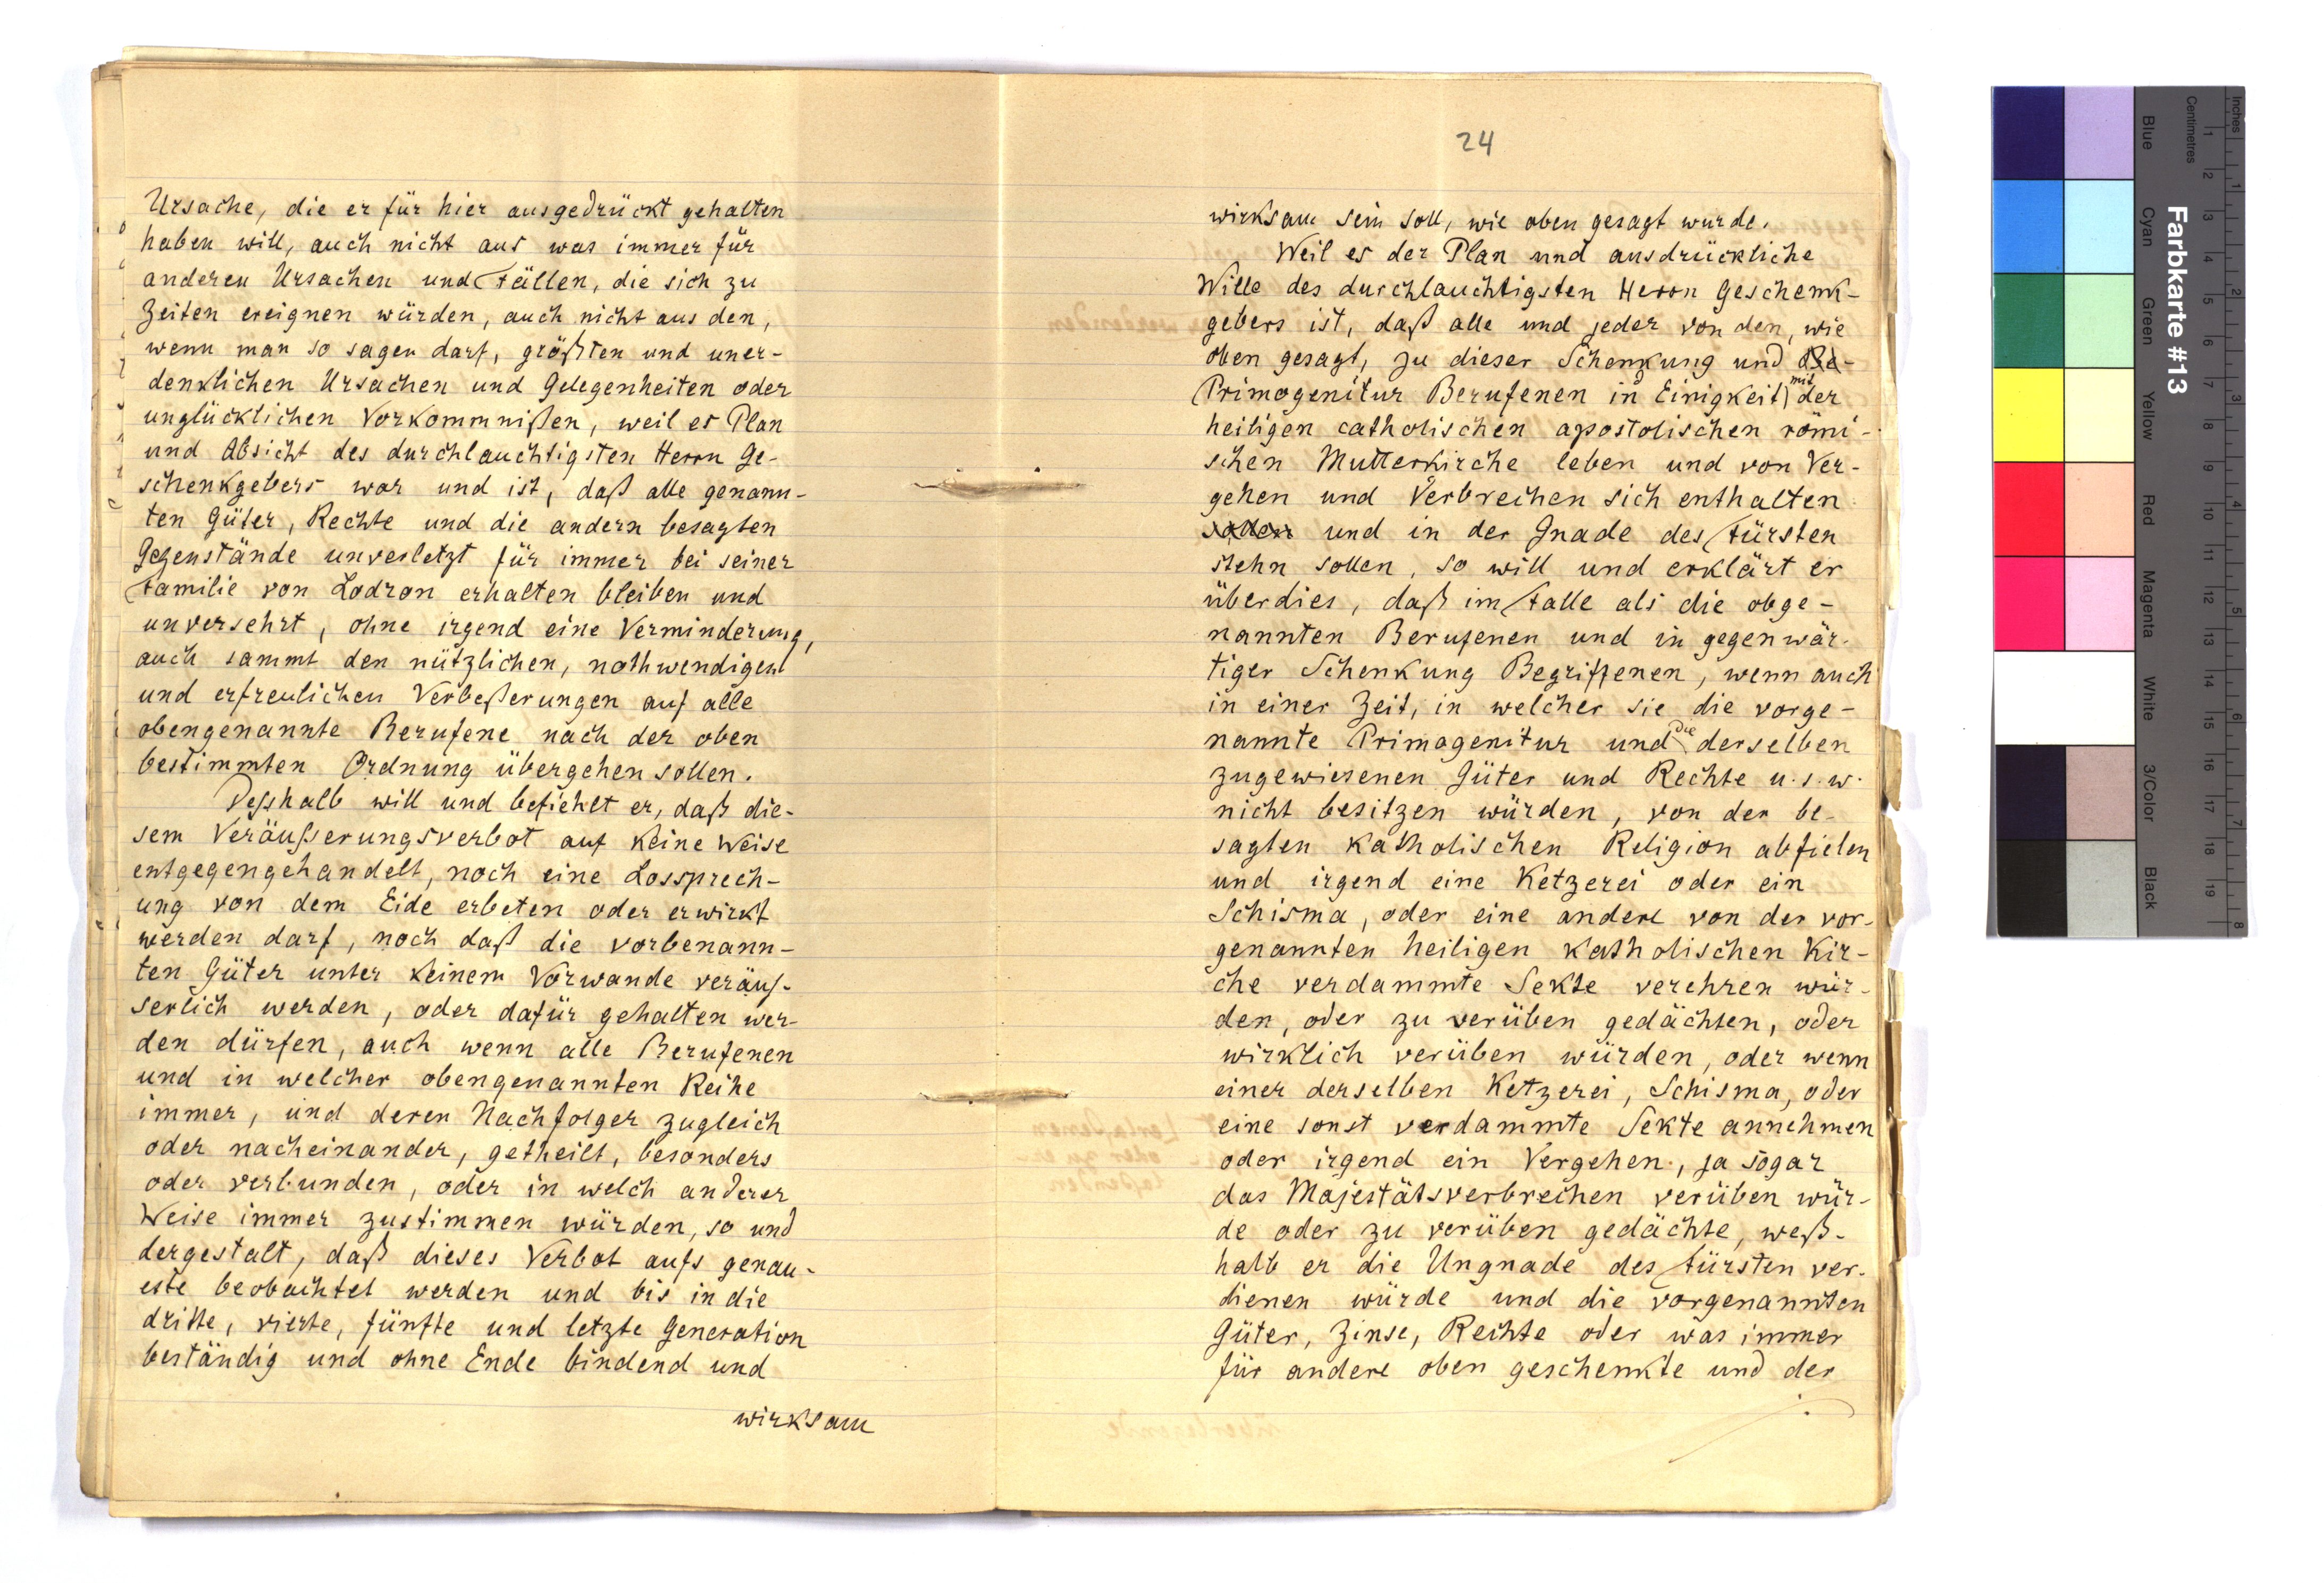 Ursache, die er für hier ausgedrückt gehalten
haben will, auch nicht aus was immer für
anderen Ursachen und Fällen, die sich zu
Zeiten ereignen würden, auch nicht aus den,
wenn man so sagen darf, größten und uner-
denklichen Ursachen und Gelegenheiten oder
unglücklichen Vorkommnißen, weil es Plan
und Absicht des durchlauchtigsten Herrn Ge-
schenkgebers war und ist, daß alle genann-
ten Güter, Rechte und die andern besagten
Gegenstände unverletzt für immer bei seiner
Familie von Lodron erhalten bleiben und
unversehrt, ohne irgend eine Verminderung,
auch sammt den nützlichen, nothwendigen
und erfreulichen Verbeßerungen auf alle
obengenannte Berufene nach der oben
bestimmten Ordnung übergehen sollen.
Deßhalb will und befiehlt er, daß die-
sem Veräußerungsverbot auf keine Weise
entgegengehandelt, noch eine Lossprech-
ung von dem Eide erbeten oder erwirkt
werden darf, noch daß die vorbenann-
ten Güter unter keinem Vorwande veräus-
serlich werden, oder dafür gehalten wer-
den dürfen, auch wenn alle Berufenen
und in welcher obengenannten Reihe
immer, und deren Nachfolger zugleich
oder nacheinander, getheilt, besonders
oder verbunden, oder in welch anderer
Weise immer zustimmen würden, so und
dergestalt, daß dieses Verbot aufs genau-
este beobachtet werden und bis in die
dritte, vierte, fünfte und letzte Generation
beständig und ohne Ende bindend und
wirksam
24
wirksam sein soll, wie oben gesagt wurde.
Weil es der Plan und ausdrückliche
Wille des durchlauchtigsten Herrn Geschenk-
gebers ist, daß alle und jeder von den, wie
oben gesagt, zu dieser Schenkung und Be-
Primogenitur Berufenen in Einigkeit mit der
heiligen catholischen apostolischen römi-
schen Mutterkirche leben und von Ver-
gehen und Verbrechen sich enthalten
und in der Gnade des Fürsten
stehn sollen, so will und erklärt er
überdies, daß im Falle als die obge-
nannten Berufenen und in gegenwär-
tiger Schenkung Begriffenen, wenn auch
in einer Zeit, in welcher sie die vorge-
nannte Primogenitur und die derselben
zugewiesenen Güter und Rechte u. s. w.
nicht besitzen würden, von der be-
sagten katholischen Religion abfielen
und irgend eine Ketzerei oder ein
Schisma, oder eine andere von der vor-
genannten heiligen katholischen Kir-
che verdammte Sekte verehren wür-
den, oder zu verüben gedächten, oder
wirklich verüben würden, oder wenn
einer derselben Ketzerei, Schisma, oder
eine sonst verdammte Sekte annehmen
oder irgend ein Vergehen, ja sogar
das Majestätsverbrechen verüben wür-
de oder zu verüben gedächte, weß-
halb er die Ungnade des Fürsten ver-
dienen würde und die vorgenannten
Güter, Zinse, Rechte oder was immer
für andere oben geschenkte und der
Farbkarte #13
Inches
Centimetres
Blue
Cyan
Green
Yellow
Red
Magenta
White
3/Color
Black
1 2 3 4 5 6 7 8 9 10 11 12 13 14 15 16 17 18 19
1 2 3 4 5 6 7 8